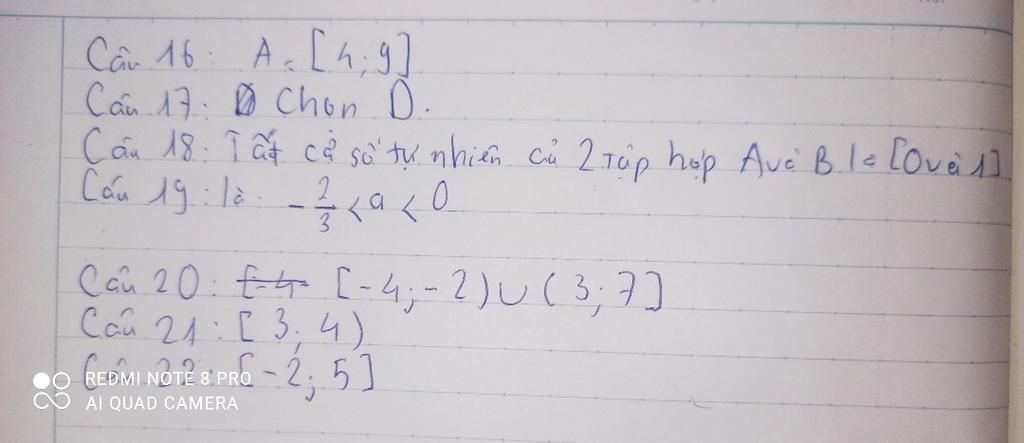 Câu 16: A = [4; 9]
Câu 17: Chọn D.
Câu 18: Tất cả số tự nhiên củ 2 tập hợp A và B là [0 và 1]
Câu 19: là: -2/3 < a < 0
Câu 20: [-4; -2) ∪ (3; 7]
Câu 21: [3; 4)
Câu 22: [-2; 5]
REDMI NOTE 8 PRO
AI QUAD CAMERA